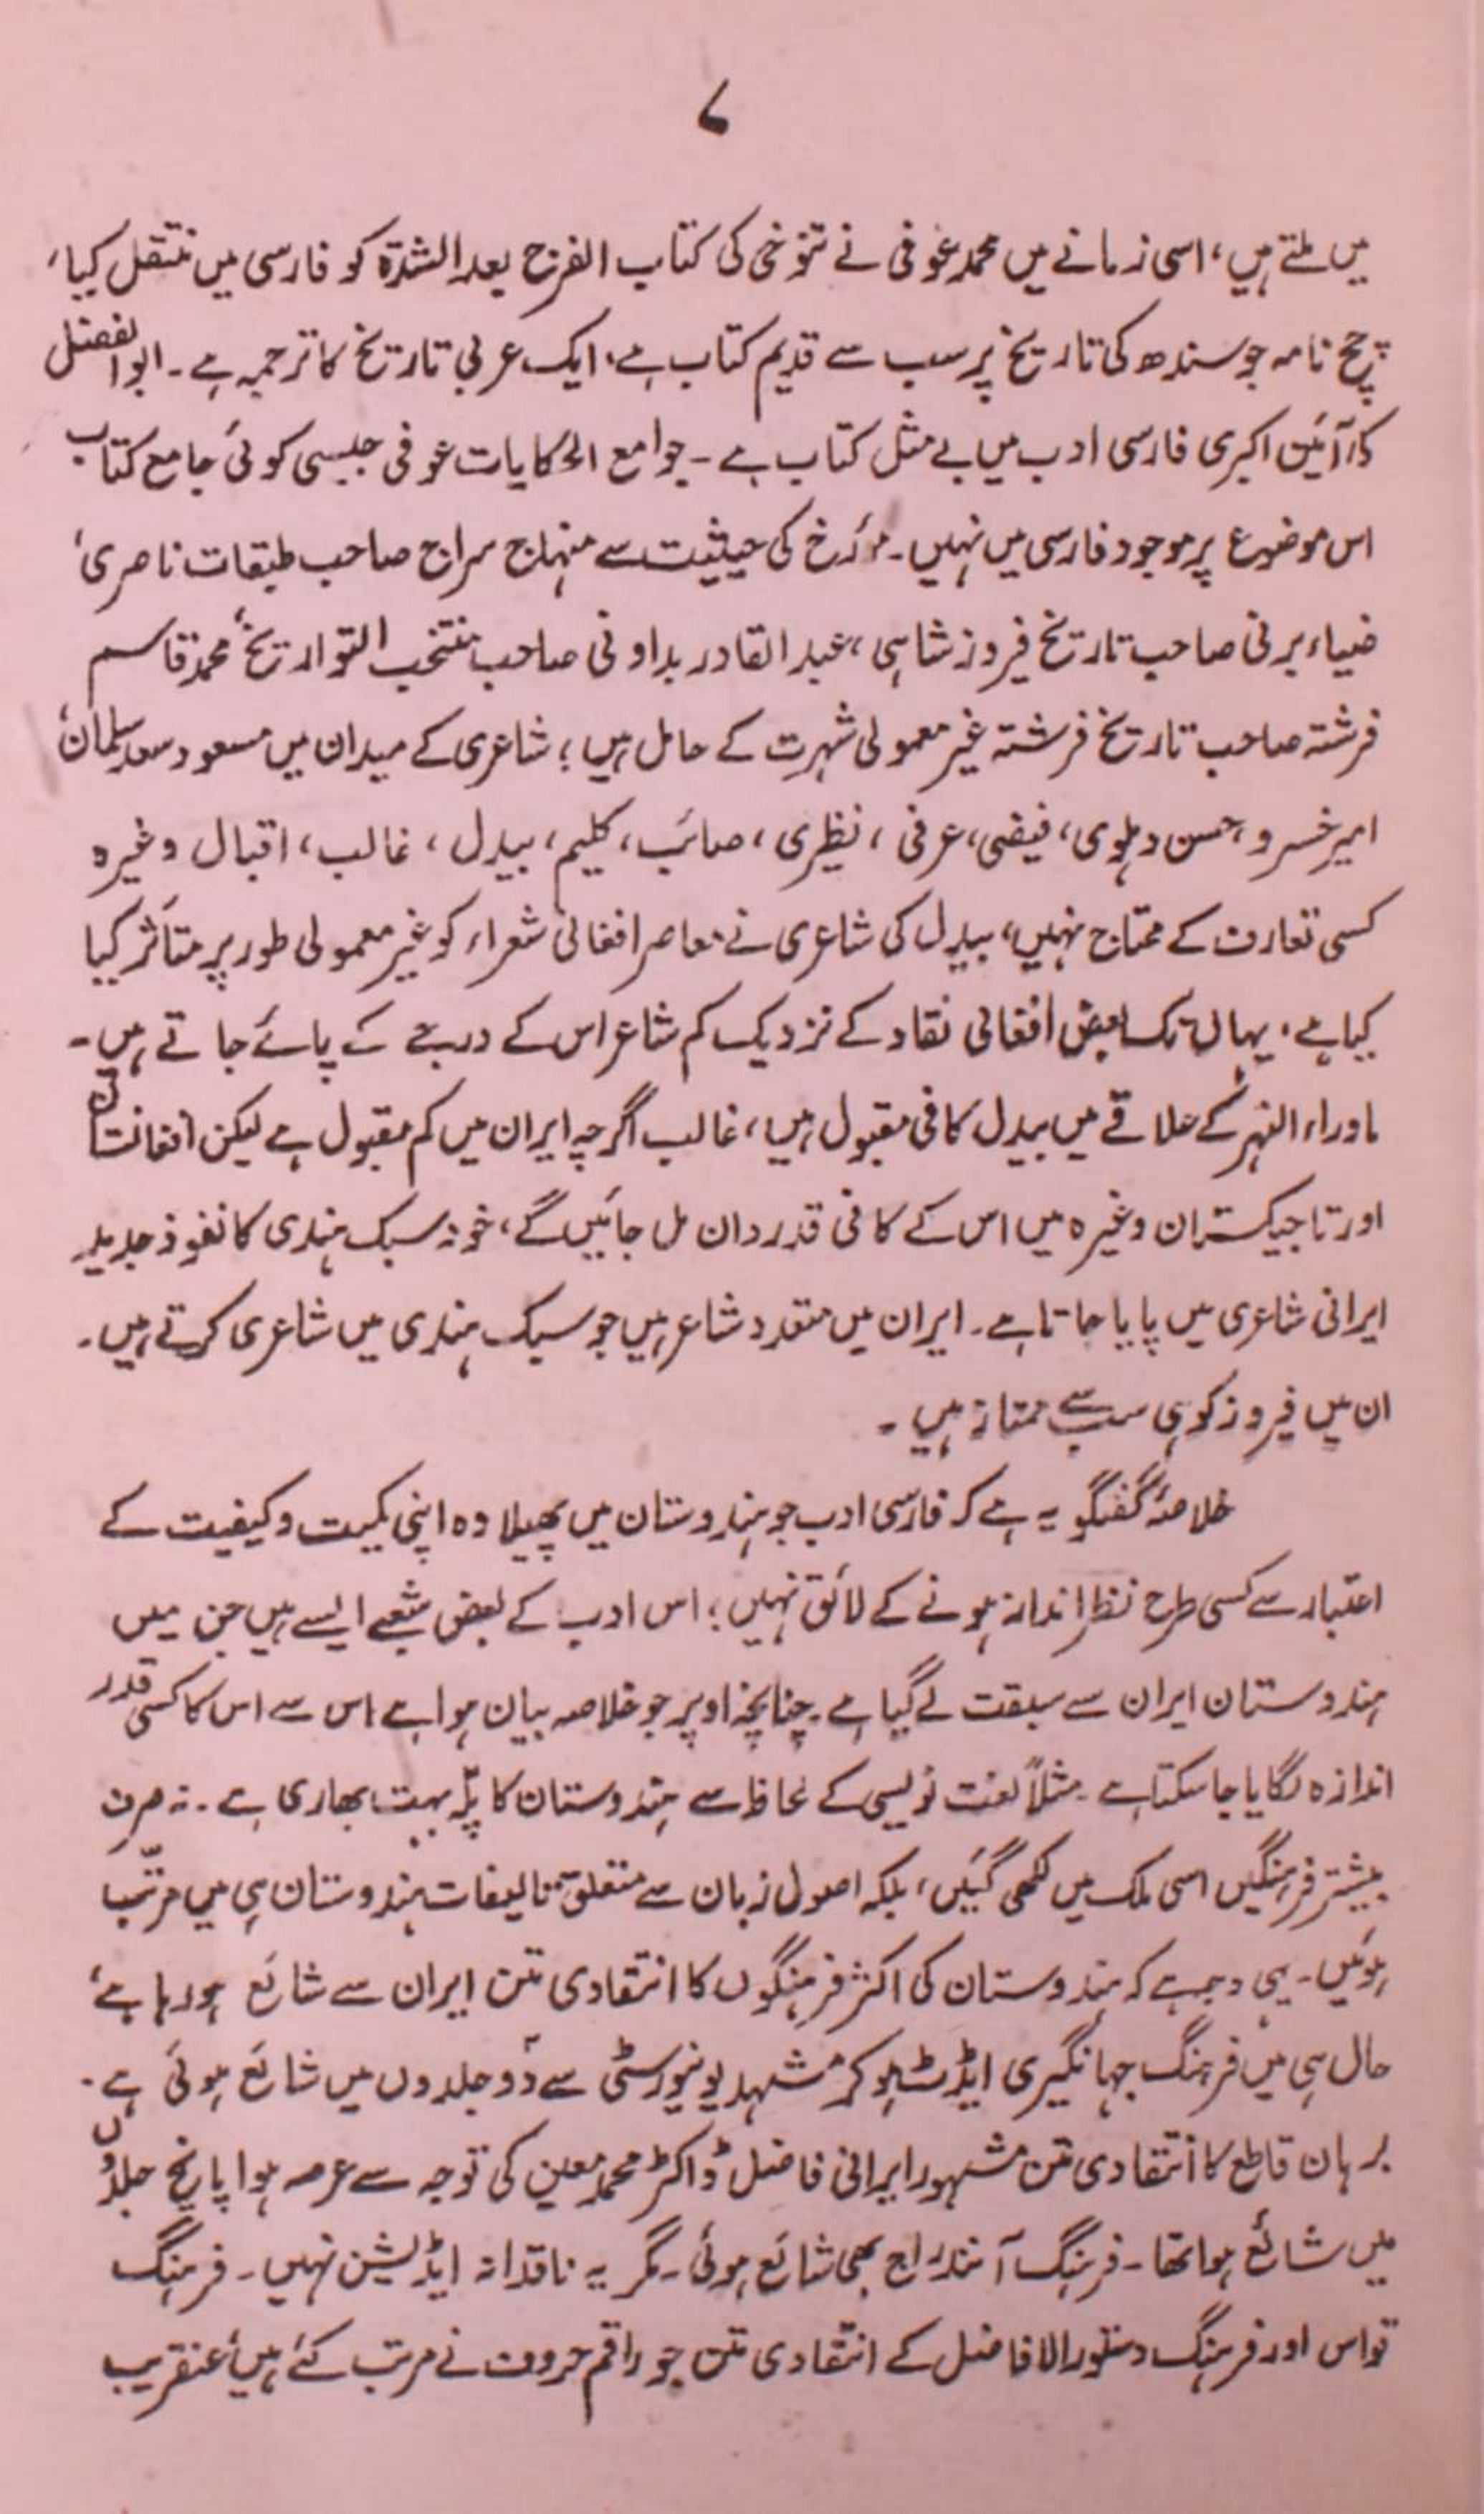 ۷
میں ملتے ہیں، اسی زمانے میں محمد عوفی نے تنوخی کی کتاب الفرج بعد الشدّۃ کو فارسی میں منتقل کیا،
چچ نامہ جو سندھ کی تاریخ پر سب سے قدیم کتاب ہے، ایک عربی تاریخ کا ترجمہ ہے۔ ابوالفضل
کا، آئین اکبری فارسی ادب میں بے مثل کتاب ہے۔ جوامع الحکایات عوفی جیسی کوئی جامع کتاب
اس موضوع پر موجود فارسی میں نہیں۔ مؤرخ کی حیثیت سے منہاج سراج صاحب طبقات ناصری،
ضیاء برنی صاحب تاریخ فیروز شاہی، عبد القادر بداونی صاحب منتخب التواریخ، محمد قاسم
فرشتہ صاحب تاریخ فرشتہ غیر معمولی شہرت کے حامل ہیں؛ شاعری کے میدان میں مسعود سعد سلمان،
امیر خسرو، حسن دہلوی، فیضی، عرفی، نظیری، صائب، کلیم، بیدل، غالب، اقبال وغیرہ
کسی تعارف کے محتاج نہیں، بیدل کی شاعری نے معاصر افغانی شعراء کو غیر معمولی طور پر متأثر کیا
کیا ہے، یہاں تک بعض افغانی نقاد کے نزدیک کم شاعر اس کے درجے کے پائے جاتے ہیں۔
ماوراء النہر کے علاقے میں بیدل کافی مقبول ہیں، غالب اگرچہ ایران میں کم مقبول ہے لیکن افغانستان
اور تاجیکستان وغیرہ میں اس کے کافی قدردان مل جائیں گے، خود سبک ہندی کا نفوذ جدید
ایرانی شاعری میں پایا جاتا ہے۔ ایران میں متعدد شاعر ہیں جو سبک ہندی میں شاعری کرتے ہیں۔
ان میں فیروز کوہی سب سے ممتاز ہیں۔
خلاصۂ گفتگو یہ ہے کہ فارسی ادب جو ہندوستان میں پھیلا وہ اپنی کمیت و کیفیت کے
اعتبار سے کسی طرح نظر انداز ہونے کے لائق نہیں؛ اس ادب کے بعض شعبے ایسے ہیں جن میں
ہندوستان ایران سے سبقت لے گیا ہے۔ چنانچہ اوپر جو خلاصہ بیان ہوا ہے اس سے اس کا کسی قدر
اندازہ لگایا جا سکتا ہے۔ مثلاً لغت نویسی کے لحاظ سے ہندوستان کا پلّہ بہت بھاری ہے۔ نہ صرف
بیشتر فرہنگیں اسی ملک میں لکھی گئیں، بلکہ اصول زبان سے متعلق تالیفات ہندوستان ہی میں مرتّب
ہوئیں۔ یہی وجہ ہے کہ ہندوستان کی اکثر فرہنگوں کا انتقادی متن ایران سے شائع ہو رہا ہے،
حال ہی میں فرہنگ جہانگیری ایڈٹ ہو کر مشہد یونیورسٹی سے دو جلدوں میں شائع ہوئی ہے۔
برہان قاطع کا انتقادی متن مشہور ایرانی فاضل ڈاکٹر محمد معین کی توجہ سے عرصہ ہوا پانچ جلدوں
میں شائع ہوا تھا۔ فرہنگ آنندراج بھی شائع ہوئی۔ مگر یہ ناقدانہ ایڈیشن نہیں۔ فرہنگ
قواس اور فرہنگ دستور الافاضل کے انتقادی متن جو راقم حروف نے مرتب کئے ہیں، عنقریب